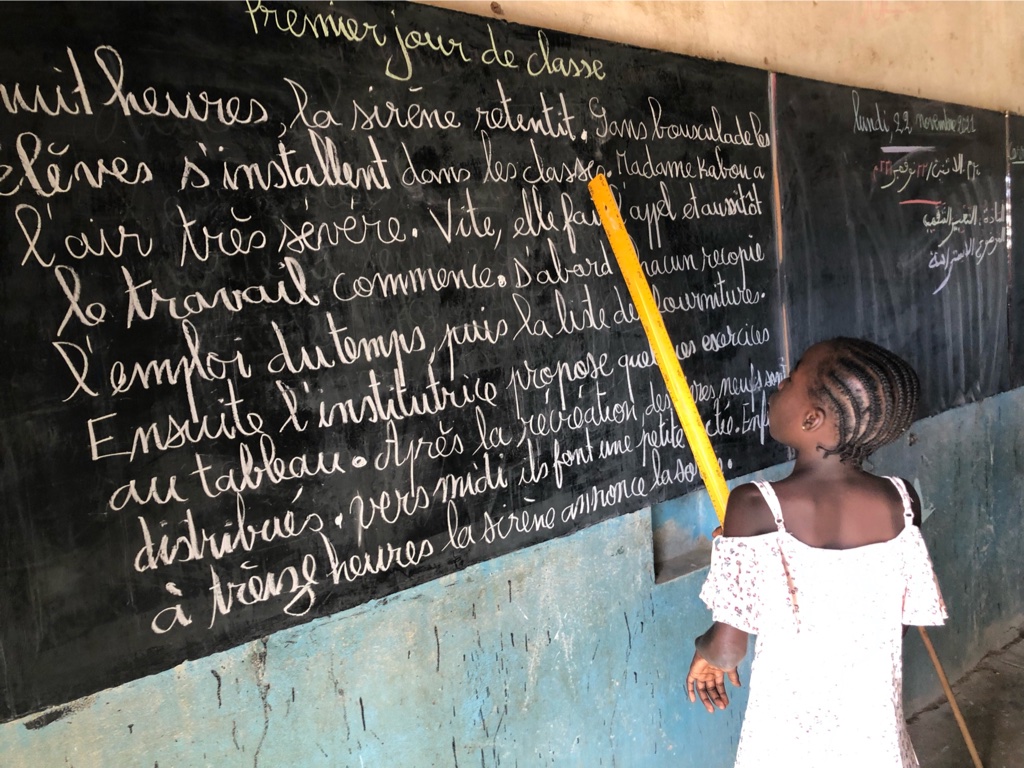 Premier jour de classe
heures, la sirène retentit. Sans bousculade les
élèves s'installent dans les classes. Madame Kabou a
l'air très sévère. Vite, elle l'appel et aussitôt
le travail commence. D'abord chacun recopie
l'emploi du temps, puis la liste de fournitures.
Ensuite l'institutrice propose quelques exercices
au tableau. Après la récréation des neufs sont
distribués. vers midi ils font une petite
à trèize heures la sirène annonce la
lundi 22 novembre 2021
الاثنين 22 نوفمبر
المادة: التعبير الشفهي